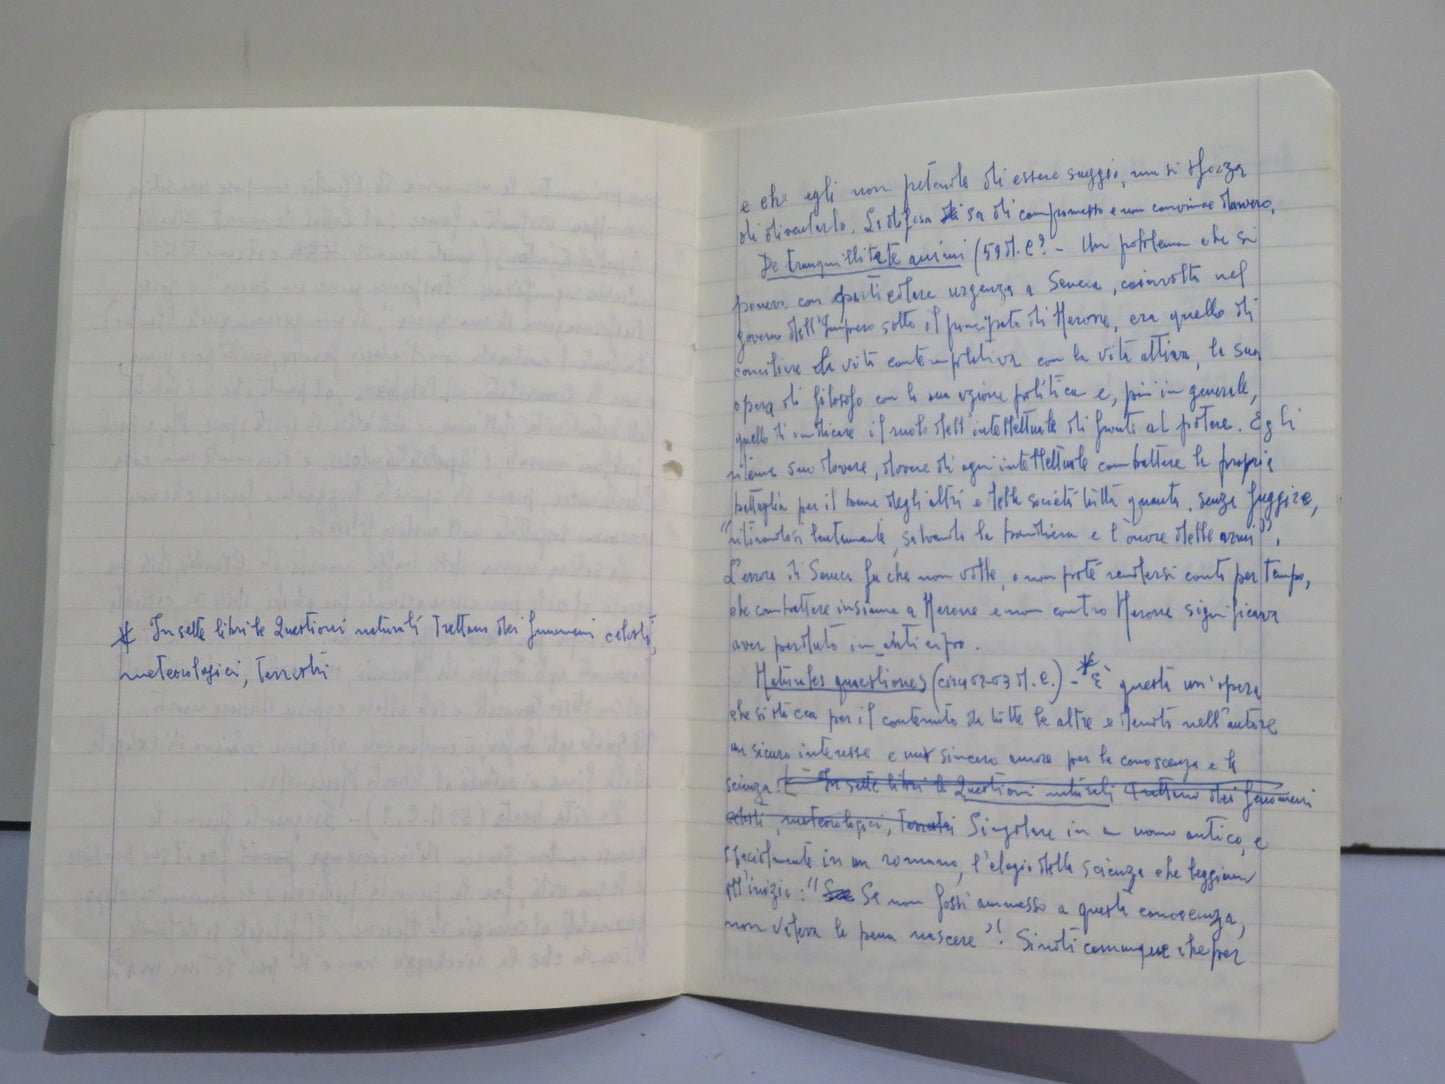 * In sette libri le Questioni naturali trattano dei fenomeni celesti,
meteorologici, terrestri
e che egli non pretende di essere saggio, ma si sforza
di diventarlo. La difesa sa di compromesso e non convince davvero.
De tranquillitate animi (59 d.C.? - Un problema che si
poneva con particolare urgenza a Seneca, coinvolto nel
governo dell'Impero sotto il principato di Nerone, era quello di
conciliare la vita contemplativa con la vita attiva, la sua
opera di filosofo con la sua azione politica e, più in generale,
quello di indicare il ruolo dell'intellettuale di fronte al potere. Egli
ritenne suo dovere, dovere di ogni intellettuale combattere la propria
battaglia per il bene degli altri e della società tutta quanta, senza fuggire,
"ritirandosi lentamente, salvando la bandiera e l'onore delle armi".
L'errore di Seneca fu che non volle, o non poté rendersi conto per tempo,
che combattere insieme a Nerone e non contro Nerone significava
aver perduto in anticipo.
Naturales quaestiones (circa 62-63 d.C.) - * È questa un'opera
che si stacca per il contenuto da tutte le altre e denota nell'autore
un sicuro interesse e un sincero amore per la conoscenza e la
scienza. In sette libri le Questioni naturali trattano dei fenomeni
celesti, meteorologici, terrestri Singolare in un uomo antico, e
specialmente in un romano, l'elogio della scienza che leggiamo
all'inizio: "Se Se non fossi ammesso a questa conoscenza,
non valeva la pena nascere"! Si noti comunque che per